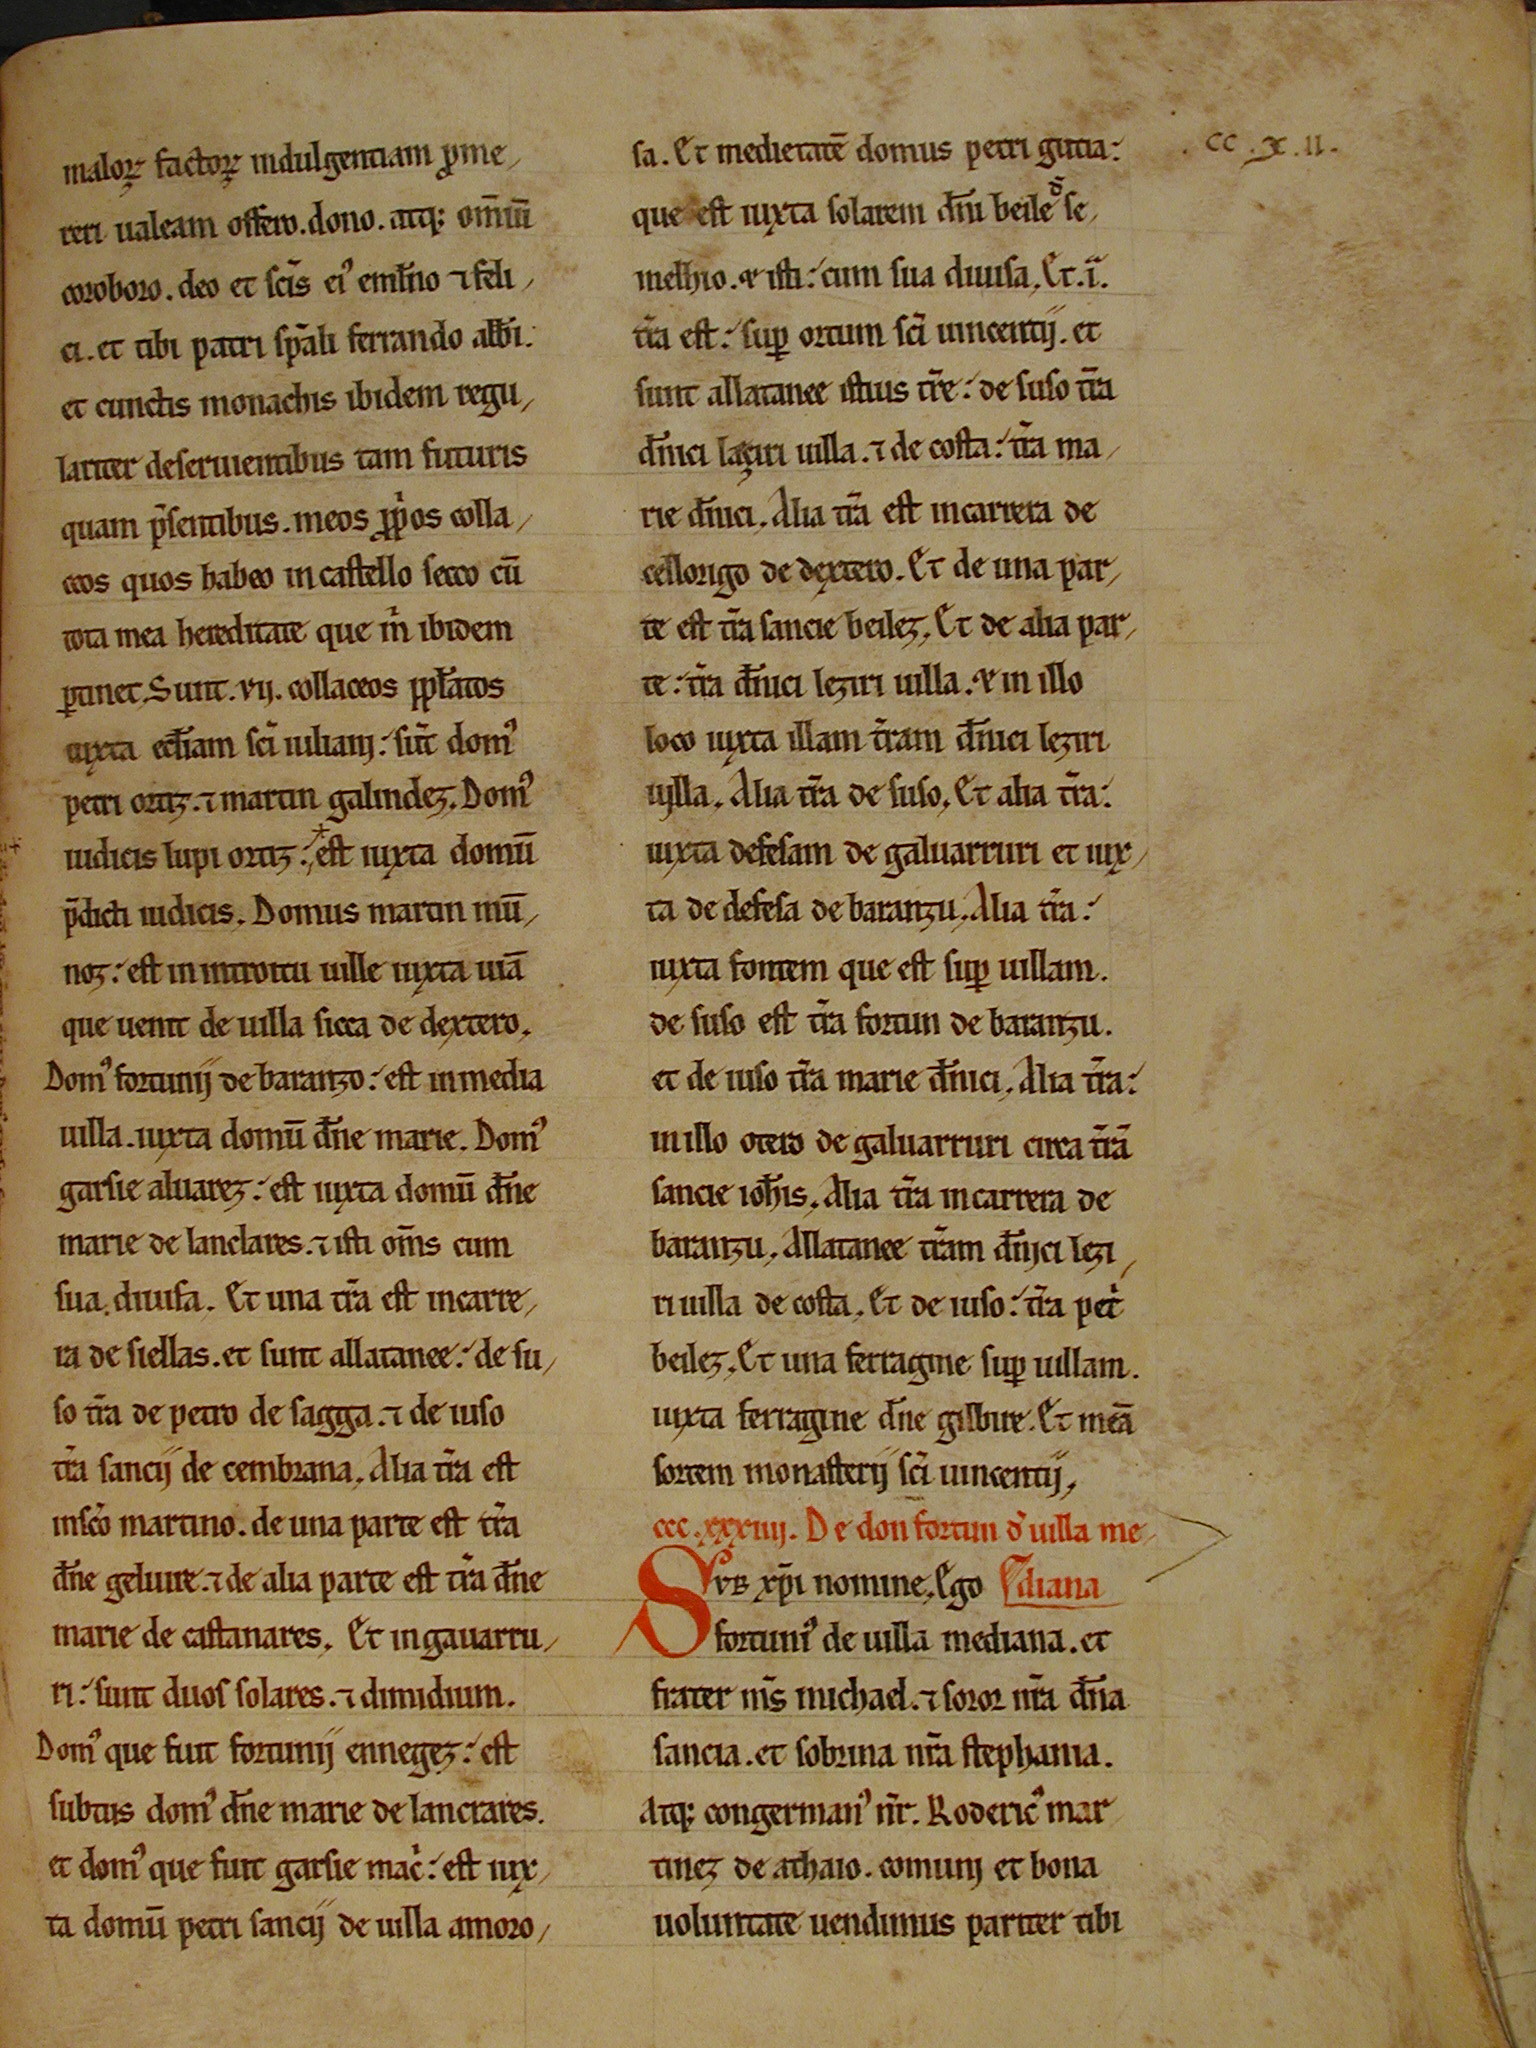 maloꝝ factoꝝ indulgentiam ꝓme,
reri ualeam offero. dono. atq; om̄iū
coroboro. deo et sc̄is eiꝰ emil̄no ⁊ feli,
ci. et tibi patri sp̄ali ferrando abb̄i.
et cunctis monachis ibidem regu,
lariter deseruientibus tam futuris
quam p̄sentibus. meos ꝓp̄os colla,
ceos quos habeo in castello secco cū
tota mea hereditate que m̄ ibidem
ꝑtinet. Sunt. vij. collaceos ꝓpl̄atos
iuxta eccl̄iam sc̄i iulianj: sūt domꝰ
petri ortiz. ⁊ martin galindez. Domꝰ
iudicis lupi ortiz: est iuxta domū
p̄dicti iudicis. Domus martin mū,
noz: est in introitu uille iuxta uiā
que uenit de uilla sicca de dextero.
Domꝰ fortunij de baranzo: est in media
uilla. iuxta domū dn̄e marie. Domꝰ
garsie aluarez: est iuxta domū dn̄e
marie de lanclares. ⁊ isti om̄s cum
sua. diuisa. Et una tr̄a est in carre,
ra de siellas. et sunt allatanee: de su,
so tr̄a de petro de sagga. ⁊ de iuso
tr̄a sancij de cembrana. Alia tr̄a est
in sc̄o martino. de una parte est tr̄a
dn̄e geluire. ⁊ de alia parte est tr̄a dn̄e
marie de castanares. Et in gauarru,
ri: sunt duos solares. ⁊ dimidium.
Domꝰ que fuit fortunij ennegez: est
subtus domꝰ dn̄e marie de lancrares.
et domꝰ que fuit garsie mac̄: est iux,
ta domū petri sancij de uilla amoro,
. CC . X . II .
sa. Et medietatē domus petri gutia:
que est iuxta solarem dn̄i beile d̄ se,
melhio. ⁊ isti: cum sua diuisa. Et. ī.
tr̄a est: suꝑ ortum sc̄i uincentij. et
sunt allatanee istius tr̄e: de suso tr̄a
dn̄ici laziri uilla. ⁊ de costa: tr̄a ma,
rie dn̄ici. Alia tr̄a est in carrera de
cellorigo de dextero. Et de una par,
te est tr̄a sancie beilez. Et de alia par,
te: tr̄a dn̄ici leziri uilla. ⁊ in illo
loco iuxta illam tr̄am dn̄ici leziri
uilla. Alia tr̄a de suso. Et alia tr̄a:
iuxta defesam de galuarruri et iux,
ta de defesa de baranzu. Alia tr̄a:
iuxta fontem que est suꝑ uillam.
de suso est tr̄a fortun de baranzu.
et de iuso tr̄a marie dn̄ici. Alia tr̄a:
in illo otero de galuarruri circa tr̄ā
sancie ioh̄is. Alia tr̄a in carrera de
baranzu. Allatanee tr̄am dn̄ici lezi,
ri uilla de costa. Et de iuso: tr̄a pet̄
beilez. Et una ferragine suꝑ uillam.
iuxta ferragine dn̄e gilbire. Et meā
sortem monasterij sc̄i uincentij.
ccc.xxxiiij. De don fortun d̄ uilla me,
diana
Svb xp̄i nomine. Ego
fortuniꝰ de uilla mediana. et
frater m̄s michael. ⁊ soror nr̄a dn̄a
sancia. et sobrina nr̄a stephania.
Atq; congermanꝰ nr̄. Rodericꝰ mar
tinez de athaio. comuni et bona
uoluntate uendimus pariter tibi